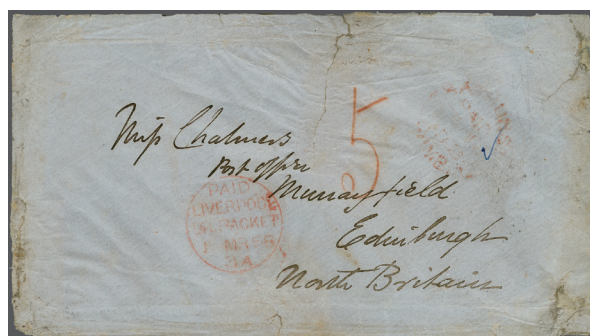 Miss Chalmers
Post office
Murrayfield
Edinburgh
North Britain
5
PAID
LIVERPOOL
PACKET
3A